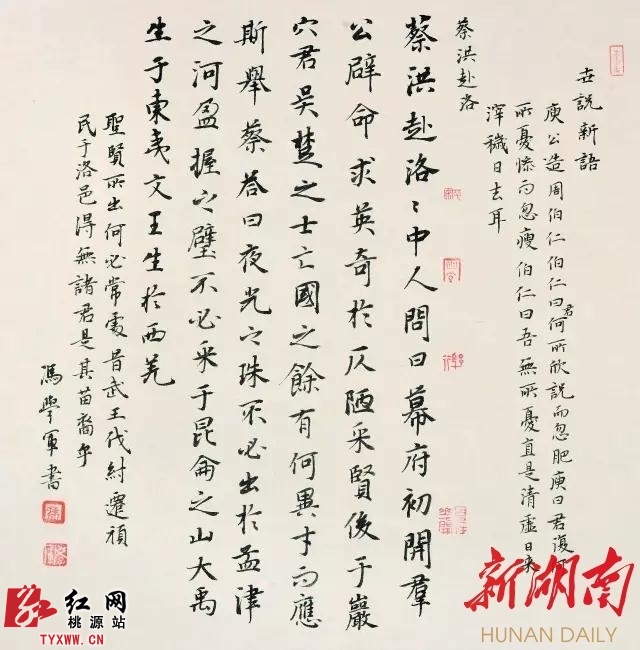 世説新語
庾公造周伯仁伯仁曰君何所欣説而忽肥庾曰君復何
所憂慘而忽瘦伯仁曰吾無所憂直是清虛日來
滓穢日去耳
蔡洪赴洛
蔡洪赴洛〻中人問曰幕府初開羣
公辟命求英奇於仄陋采賢俊于巖
穴君吳楚之士亡國之餘有何異才而應
斯舉蔡答曰夜光之珠不必出於孟津
之河盈握之璧不必采于昆侖之山大禹
生于東夷文王生於西羌
聖賢所出何必常處昔武王伐紂遷頑
民于洛邑得無諸君是其苗裔乎
馮學軍書
红网
桃源站
TYXWW.CN
新湖南
HUNAN DAILY